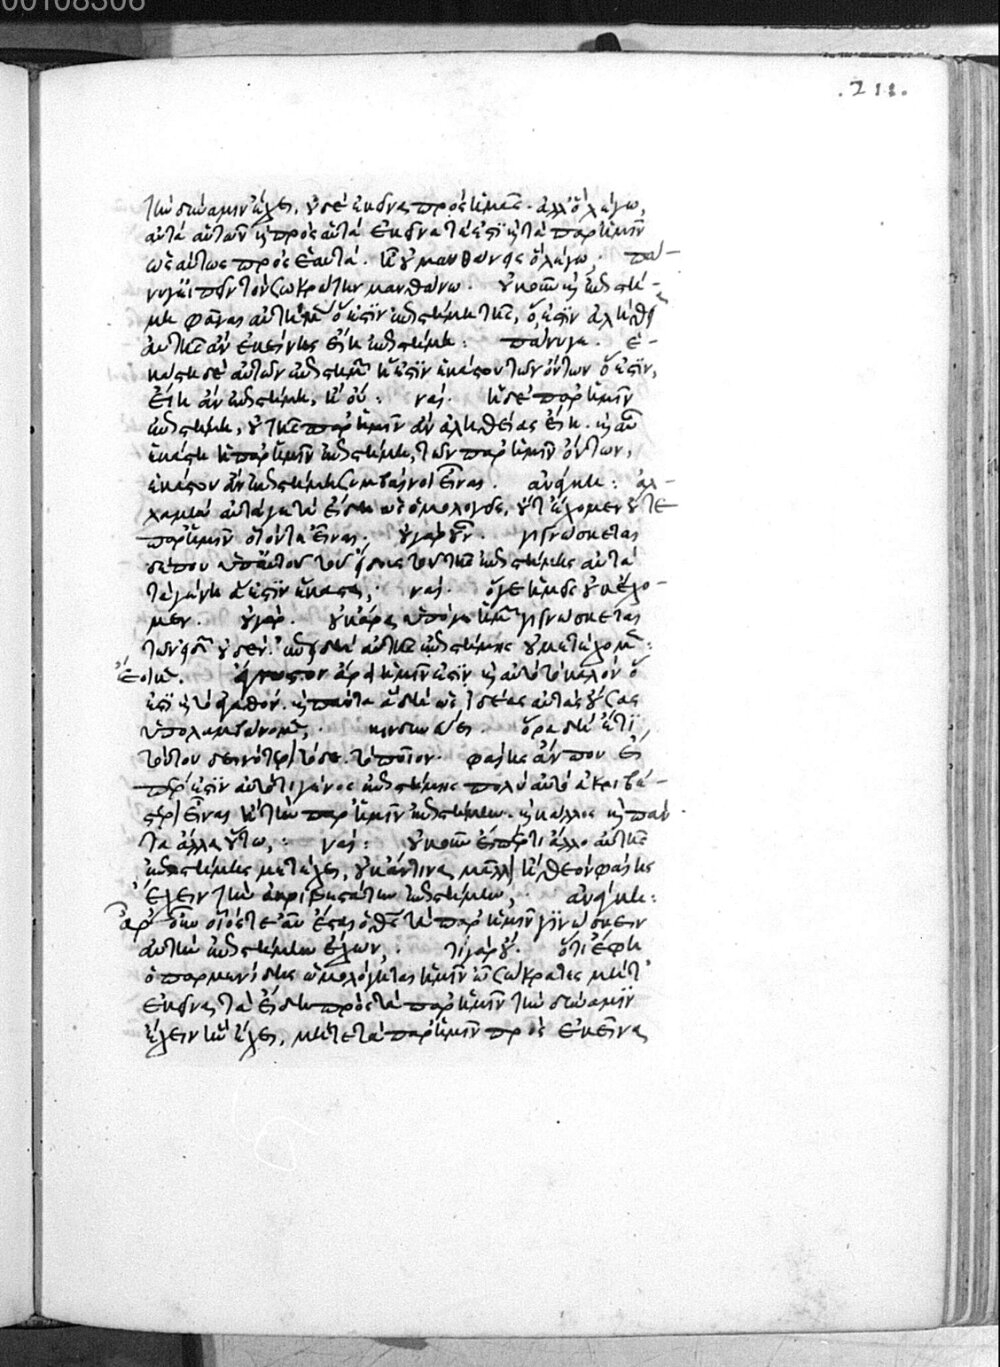 00108306
.211.
τὴν δύναμιν ἔχει, οὐδὲ ἐκεῖνα πρὸς ἡμᾶς. ἀλλ' ὃ λέγω,
αὐτὰ αὑτῶν καὶ πρὸς αὑτὰ ἐκεῖνά τέ ἐστι καὶ τὰ παρ' ἡμῖν
ὡσαύτως πρὸς ἑαυτά. ἢ οὐ μανθάνεις ὃ λέγω. πά-
νυ γ' εἰπεῖν τὸν Σωκράτην μανθάνω. οὐκοῦν καὶ ἐπιστή-
μη φάναι αὐτὴ μὲν ὃ ἔστιν ἐπιστήμη τῆς, ὃ ἔστιν ἀλήθεια
αὐτῆς ἂν ἐκείνης εἴη ἐπιστήμη: πάνυ γε. ἑ-
κάστη δὲ αὖ τῶν ἐπιστημῶν ἣ ἔστιν ἑκάστου τῶν ὄντων ὃ ἔστιν,
εἴη ἂν ἐπιστήμη, ἢ οὔ: ναί. ἡ δὲ παρ' ἡμῖν
ἐπιστήμη, οὐ τῆς παρ' ἡμῖν ἂν ἀληθείας εἴη. καὶ αὖ
ἑκάστη ἡ παρ' ἡμῖν ἐπιστήμη, τῶν παρ' ἡμῖν ὄντων,
ἑκάστου ἂν ἐπιστήμη συμβαίνοι εἶναι. ἀνάγκη: ἀλ-
λὰ μὴν αὐτά γε τὰ εἴδη ὡς ὁμολογεῖς, οὔτ' ἔχομεν οὔτε
παρ' ἡμῖν οἷόν τε εἶναι. οὐ γὰρ οὖν. γιγνώσκεται
δέ που ὑπ' αὐτοῦ τοῦ εἴδους τοῦ τῆς ἐπιστήμης αὐτὰ
τὰ γένη ἃ ἔστιν ἕκαστα. ναί. ὅ γε ἡμεῖς οὐκ ἔχο-
μεν. οὐ γάρ. οὐκ ἄρα ὑπό γε ἡμῶν γιγνώσκεται
τῶν εἰδῶν οὐδέν. ἐπειδὴ αὐτῆς ἐπιστήμης οὐ μετέχομεν:
ἔοικεν. ἄγνωστον ἄρα ἡμῖν ἐστὶ καὶ αὐτὸ τὸ καλὸν ὃ
ἔστι καὶ τὸ ἀγαθόν. καὶ πάντα ἃ δὴ ὡς ἰδέας αὐτὰς οὔσας
ὑπολαμβάνομεν. κινδυνεύει. ὅρα δὴ ἔτι
τούτου δεινότερον τόδε. τὸ ποῖον. φαίης ἄν που εἴ
πέρ ἐστιν αὐτό τι γένος ἐπιστήμης πολὺ αὐτὸ ἀκριβέ-
στερον εἶναι ἢ τὴν παρ' ἡμῖν ἐπιστήμην. καὶ κάλλος καὶ πάν-
τα ἄλλα οὕτω: ναί: οὐκοῦν εἴπερ τι ἄλλο αὐτῆς
ἐπιστήμης μετέχει, οὐκ ἄν τινα μᾶλλον ἢ θεὸν φαίης
ἔχειν τὴν ἀκριβεστάτην ἐπιστήμην. ἀνάγκη:
ἆρ' οὖν οἷός τε αὖ ἔσται ὁ θεὸς τὰ παρ' ἡμῖν γιγνώσκειν
αὐτὴν ἐπιστήμην ἔχων. τί γὰρ οὔ. ὅτι ἔφη
ὁ παρμενίδης ὡμολόγηται ἡμῖν ὦ Σώκρατες μήτ'
ἐκεῖνα τὰ εἴδη πρὸς τὰ παρ' ἡμῖν τὴν δύναμιν
ἔχειν ἣν ἔχει, μήτε τὰ παρ' ἡμῖν πρὸς ἐκεῖνα